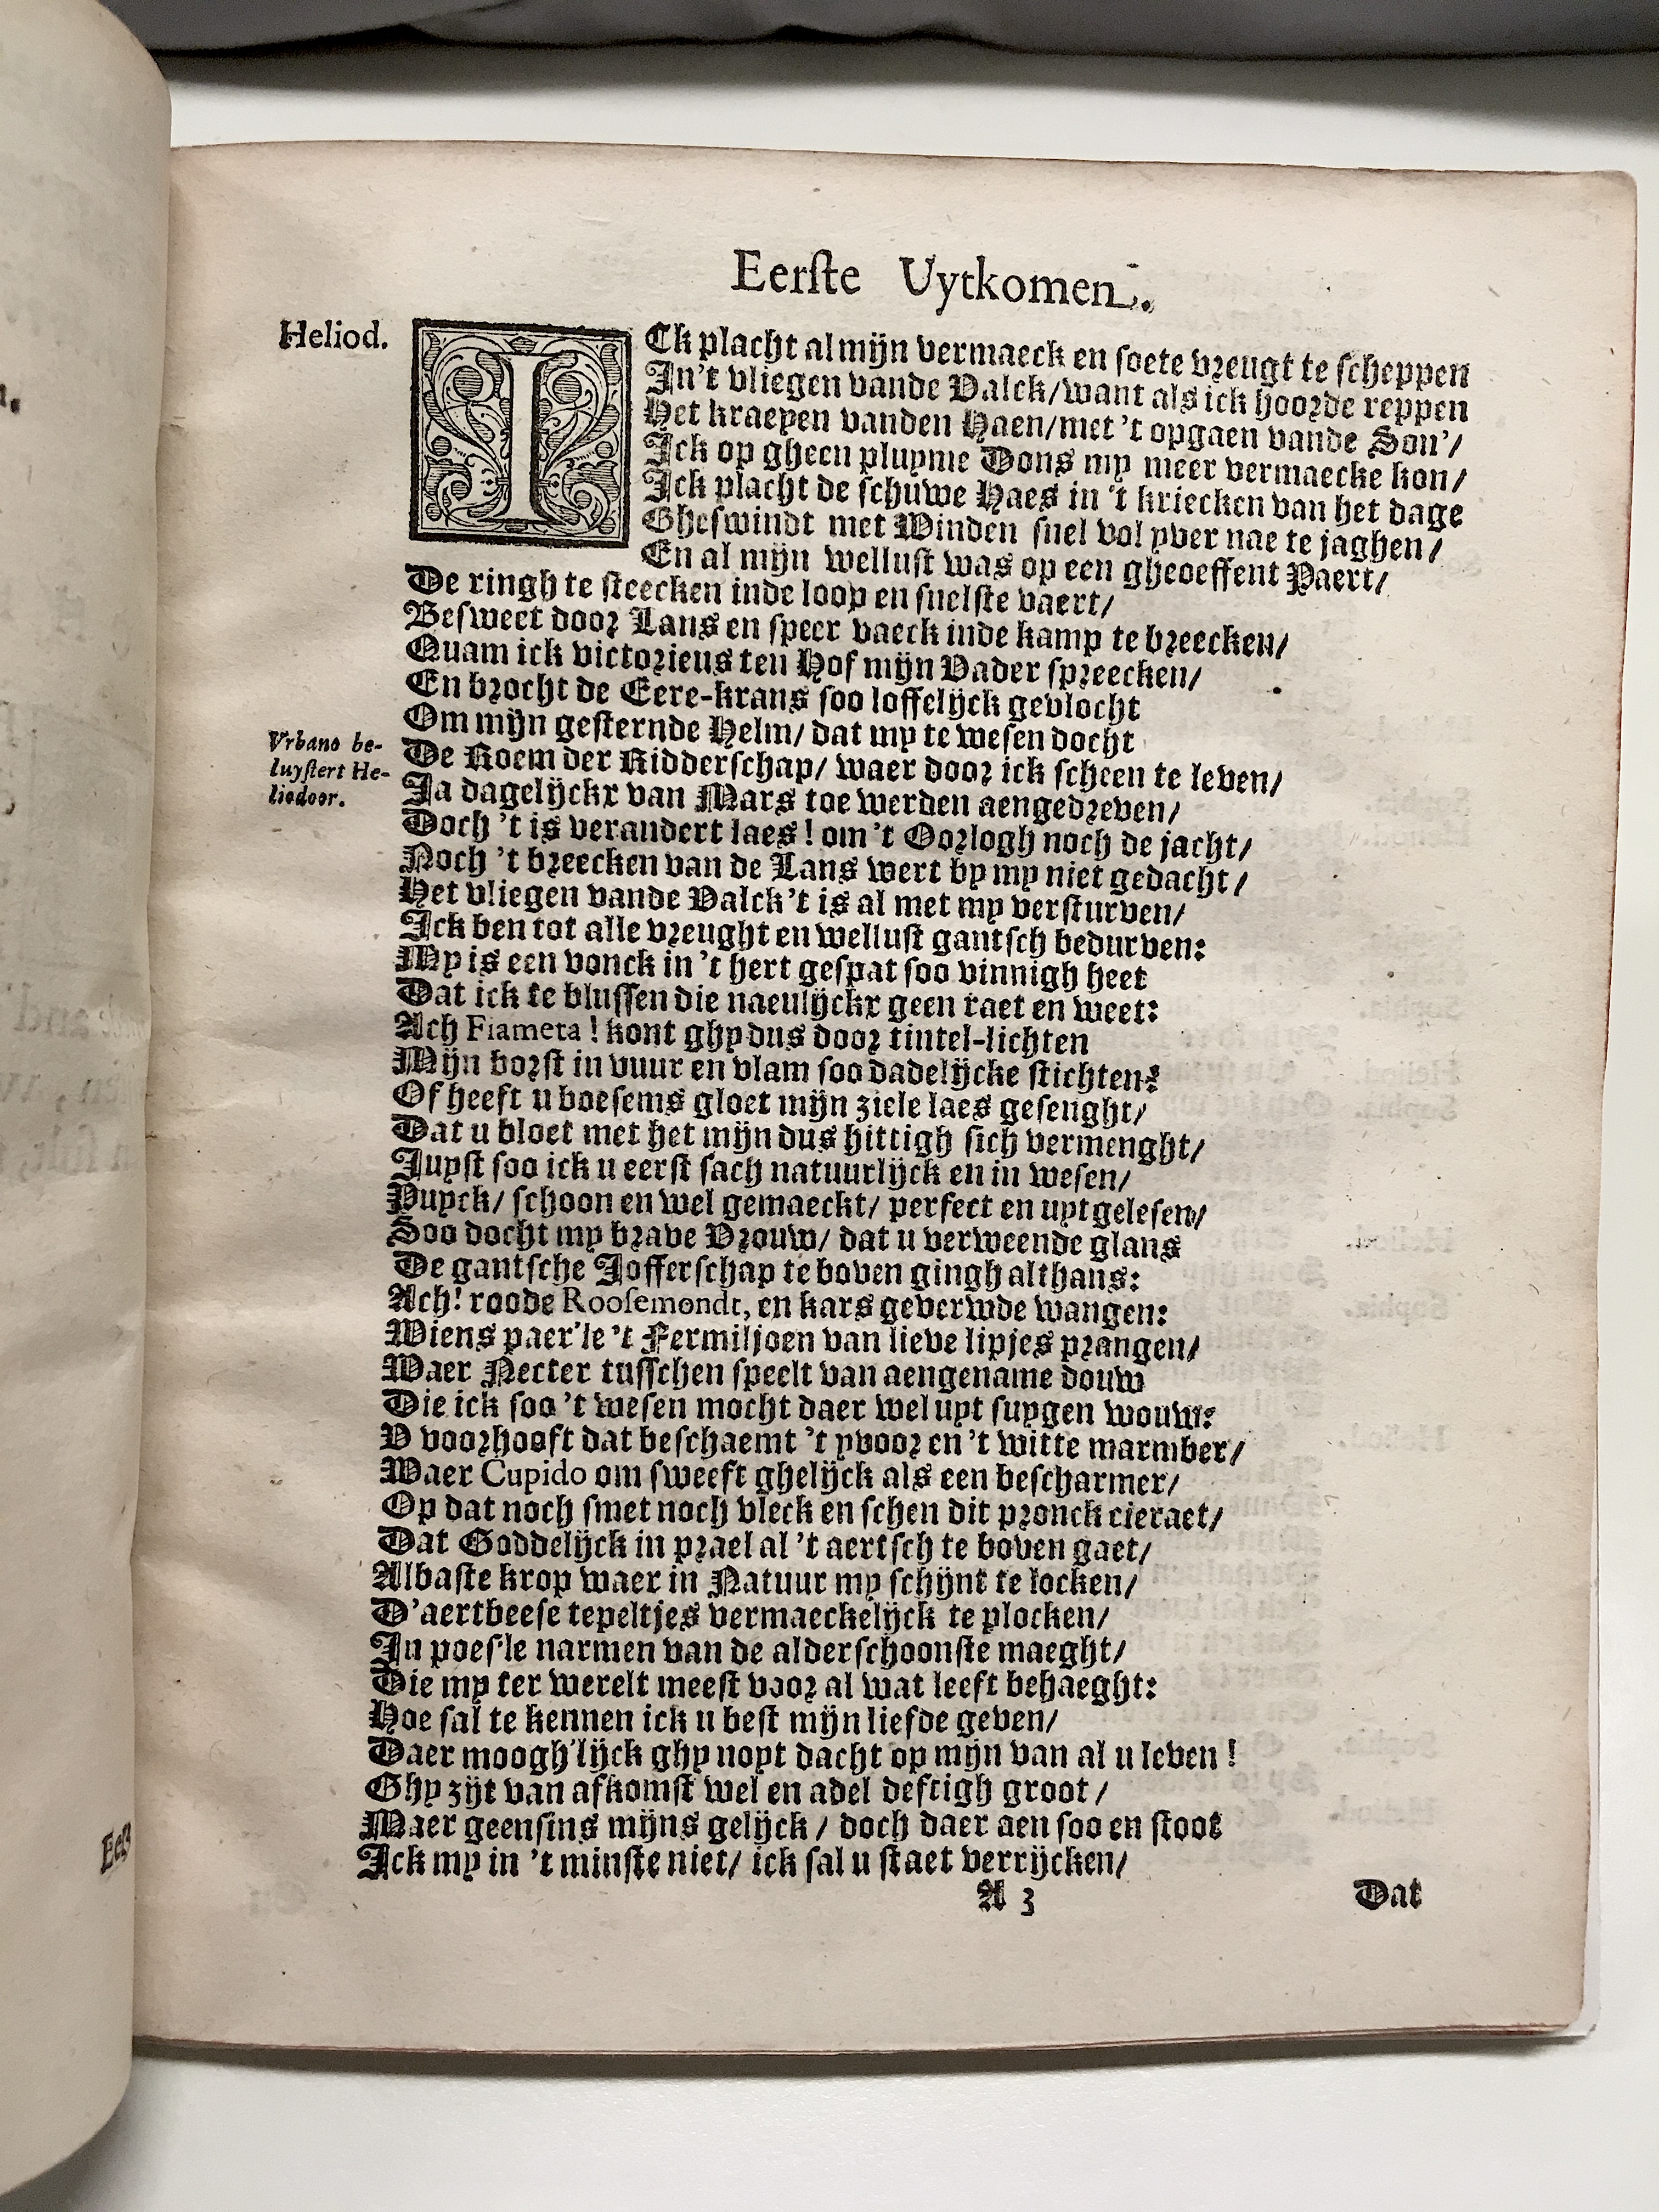 Eerste Uytkomen.
Heliod.
ICk placht al mijn vermaeck en soete vreugt te scheppen
In't vliegen vande Valck/want als ick hoorde reppen
Het kraeyen vanden Haen/met 't opgaen vande Son'/
Ick op gheen pluyme Dons my meer vermaecke kon/
Ick placht de schuwe Haes in 't kriecken van het dage
Gheswindt met Winden snel vol yver nae te jaghen/
En al mijn wellust was op een gheoeffent Paert/
De ringh te steecken inde loop en snelste vaert/
Besweet door Lans en speer vaeck inde kamp te breecken/
Quam ick victorieus ten Hof mijn Vader spreecken/
En brocht de Eere-krans soo loffelijck gevlocht
Om mijn gesternde Helm/ dat my te wesen docht
Vrbano be-
luystert He-
liodoor.
De Roem der Ridderschap/ waer door ick scheen te leven/
Ja dagelijckx van Mars toe werden aengedreven/
Doch 't is verandert laes! om 't Oorlogh noch de jacht/
Noch 't breecken van de Lans wert by my niet gedacht/
Het vliegen vande Valck 't is al met my versturven/
Ick ben tot alle vreught en wellust gantsch bedurven:
My is een vonck in 't hert gespat soo vinnigh heet
Dat ick te blussen die naeulijckx geen raet en weet:
Ach Fiameta! kont ghy dus door tintel-lichten
Mijn borst in vuur en vlam soo dadelijcke stichten?
Of heeft u boesems gloet mijn ziele laes gesenght/
Dat u bloet met het mijn dus hittigh sich vermenght/
Juyst soo ick u eerst sach natuurlijck en in wesen/
Puyck/ schoon en wel gemaeckt/ perfect en uytgelesen/
Soo docht my brave Vrouw/ dat u verweende glans
De gantsche Jofferschap te boven gingh althans:
Ach! roode Roosemondt, en kars geverwde wangen:
Wiens paer'le 't Fermiljoen van lieve lipjes prangen/
Waer Necter tusschen speelt van aengename douw
Die ick soo 't wesen mocht daer wel uyt suygen wouw:
V voorhooft dat beschaemt 't yvoor en 't witte marmber/
Waer Cupido om sweeft ghelijck als een bescharmer/
Op dat noch smet noch vleck en schen dit pronck cieraet/
Dat Goddelijck in prael al 't aertsch te boven gaet/
Albaste krop waer in Natuur my schijnt te locken/
D'aertbeese tepeltjes vermaeckelijck te plocken/
In poes'le narmen van de alderschoonste maeght/
Die my ter werelt meest voor al wat leeft behaeght:
Hoe sal te kennen ick u best mijn liefde geven/
Daer moogh'lijck ghy noyt dacht op mijn van al u leven!
Ghy zijt van afkomst wel en adel deftigh groot/
Maer geensins mijns gelijck/ doch daer aen soo en stoot
Ick my in 't minste niet/ ick sal u staet verrijcken/
A 3 Dat